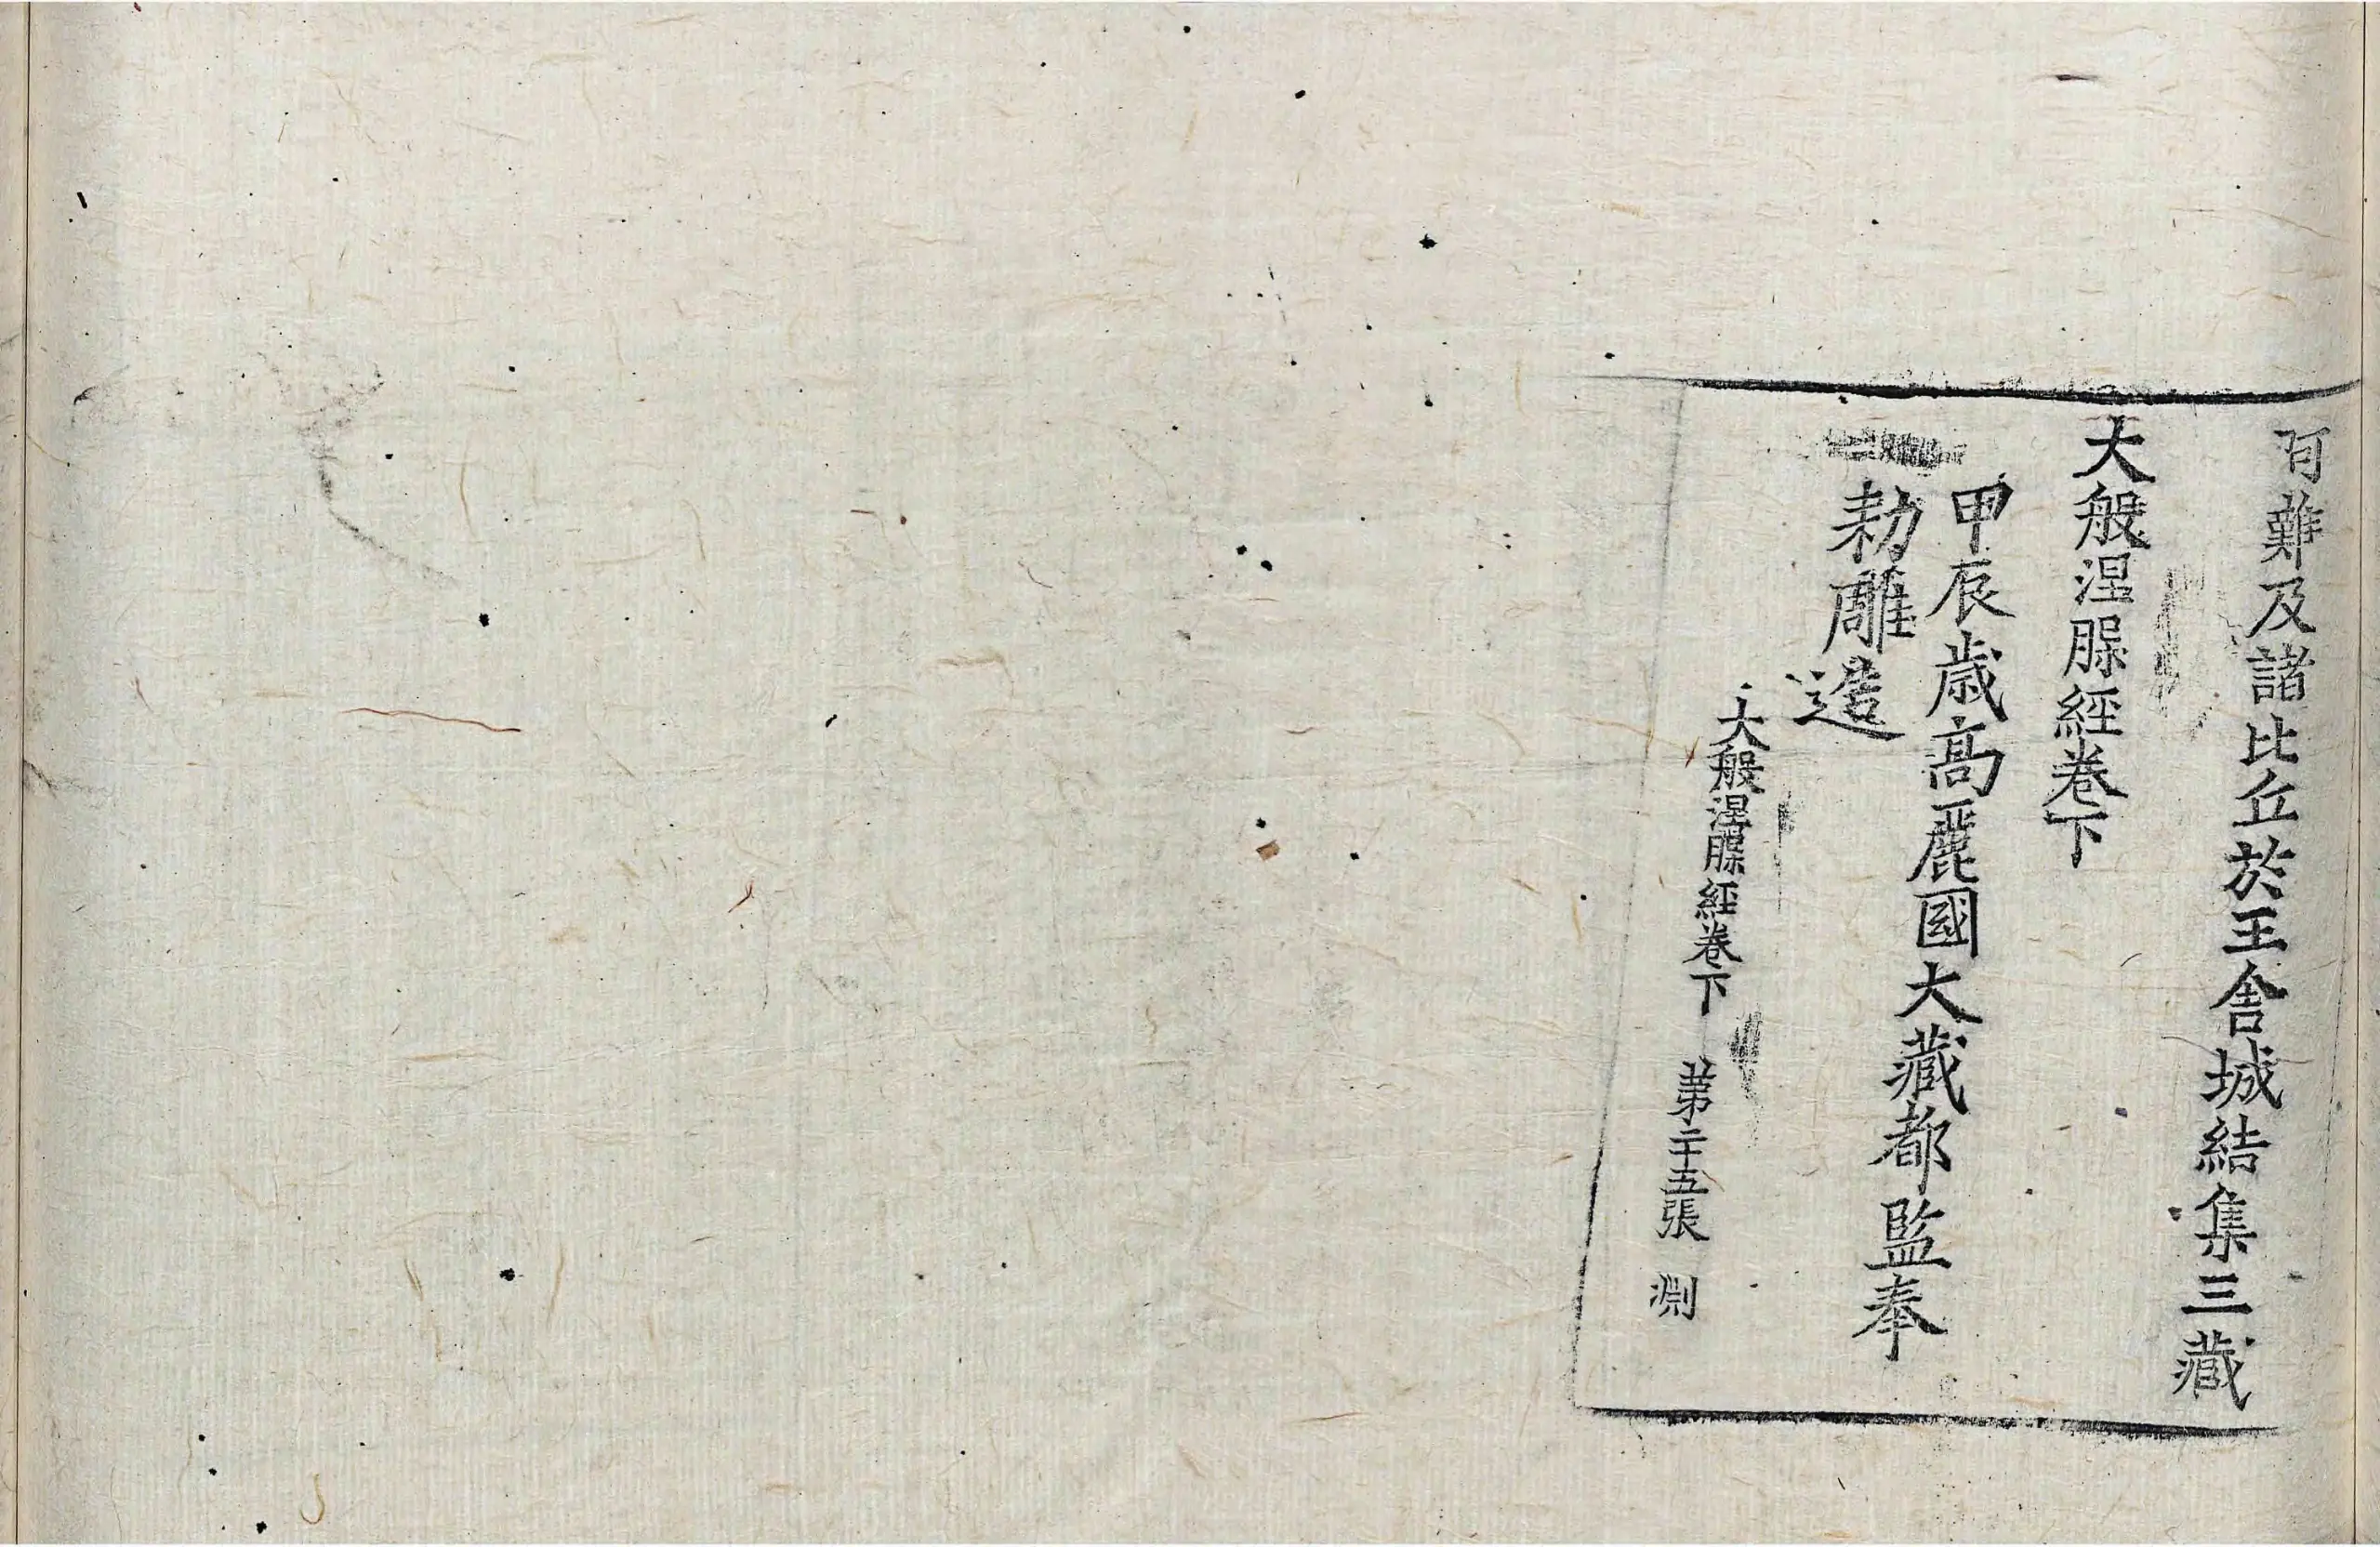 阿難及諸比丘於王舍城結集三藏
大般涅脲經卷下
甲辰歳高麗國大藏都監奉
勑雕造
大般涅脲經卷下　第二十五張　淵